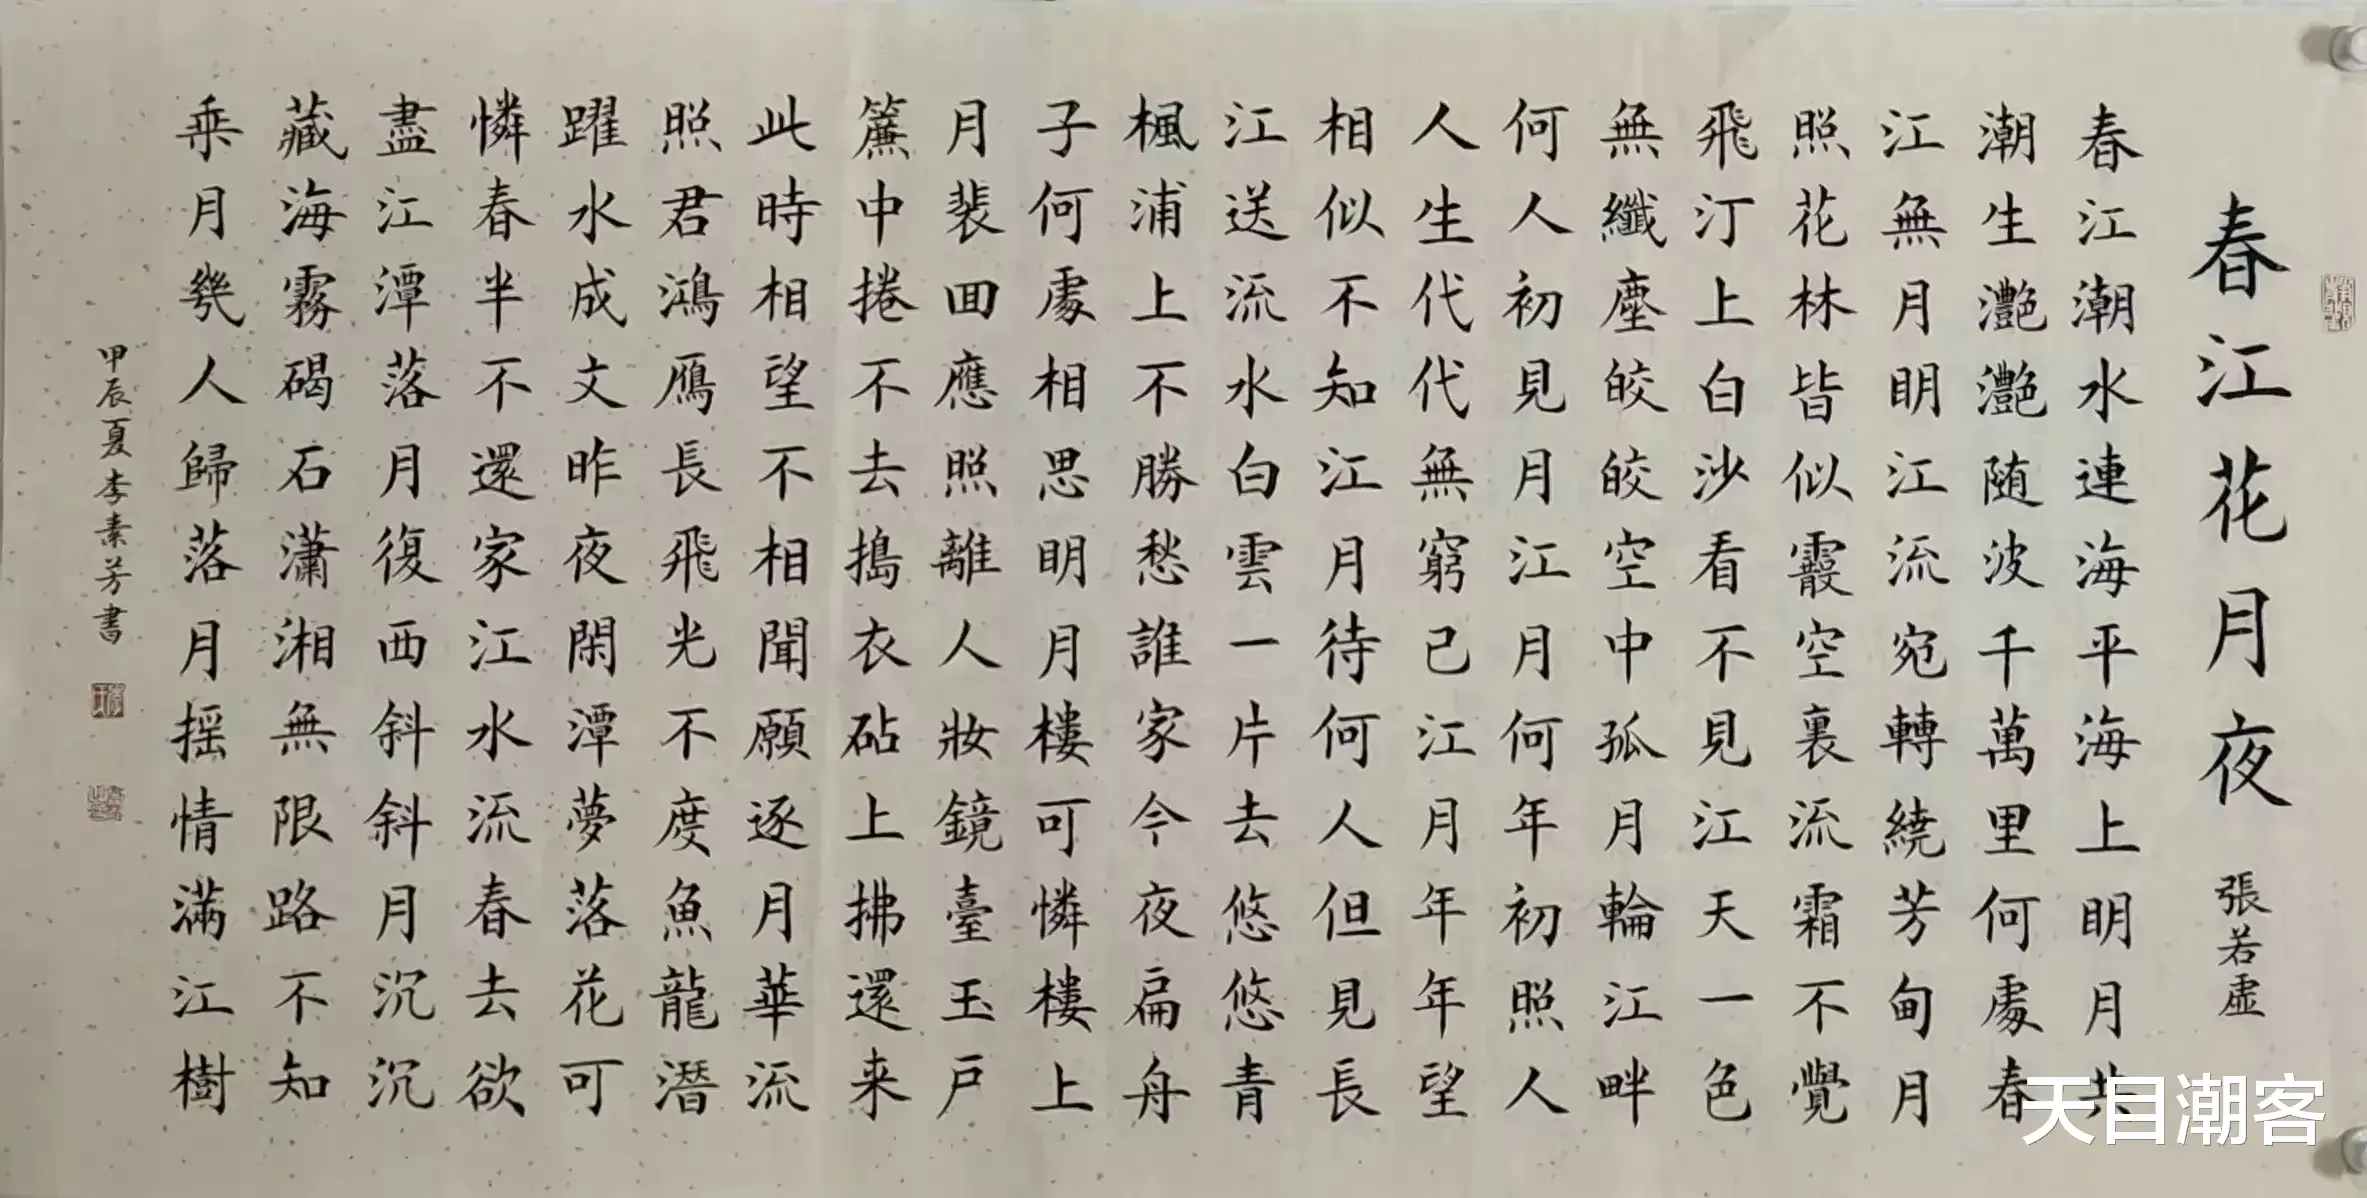 春江花月夜 張若虛
春江潮水連海平海上明月共
潮生灧灧随波千萬里何處春
江無月明江流宛轉繞芳甸月
照花林皆似霰空裏流霜不覺
飛汀上白沙看不見江天一色
無纖塵皎皎空中孤月輪江畔
何人初見月江月何年初照人
人生代代無窮已江月年年望
相似不知江月待何人但見長
江送流水白雲一片去悠悠青
楓浦上不勝愁誰家今夜扁舟
子何處相思明月樓可憐樓上
月裴回應照離人妝鏡臺玉戶
簾中捲不去搗衣砧上拂還来
此時相望不相聞願逐月華流
照君鴻雁長飛光不度魚龍潛
躍水成文昨夜閑潭夢落花可
憐春半不還家江水流春去欲
盡江潭落月復西斜斜月沉沉
藏海霧碣石瀟湘無限路不知
乘月幾人歸落月摇情滿江樹
甲辰夏李素芳書
天目潮客